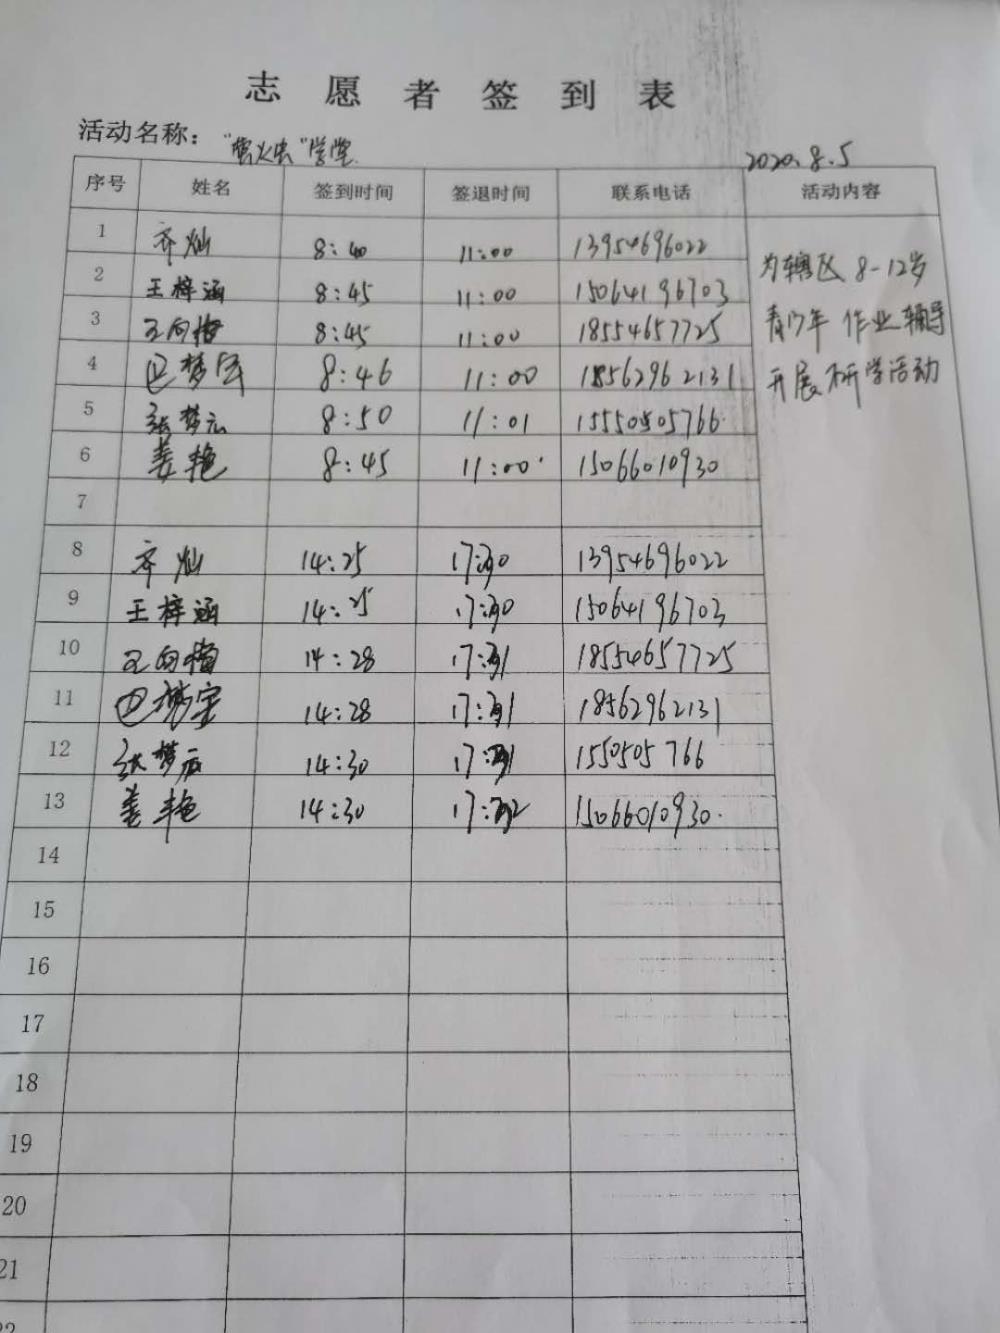 志愿者签到表
活动名称： "萤火虫"学堂
2020.8.5
序号 姓名 签到时间 签退时间 联系电话 活动内容
1 齐灿 8:40 11:00 13954696022
2 王梓涵 8:45 11:00 15064196703
3 王向梅 8:45 11:00 18554657725
4 巴梦 8:46 11:00 18562962131
5 张梦云 8:50 11:01 15550505766
6 姜艳 8:45 11:00 15066010930
为辖区8-12岁
青少年作业辅导
开展研学活动
7
8 齐灿 14:25 17:30 13954696022
9 王梓涵 14:25 17:30 15064196703
10 王向梅 14:28 17:31 18554657725
11 巴 14:28 17:31 18562962131
12 张梦云 14:30 17:31 1550505766
13 姜艳 14:30 17:32 15066010930
14
15
16
17
18
19
20
21
22